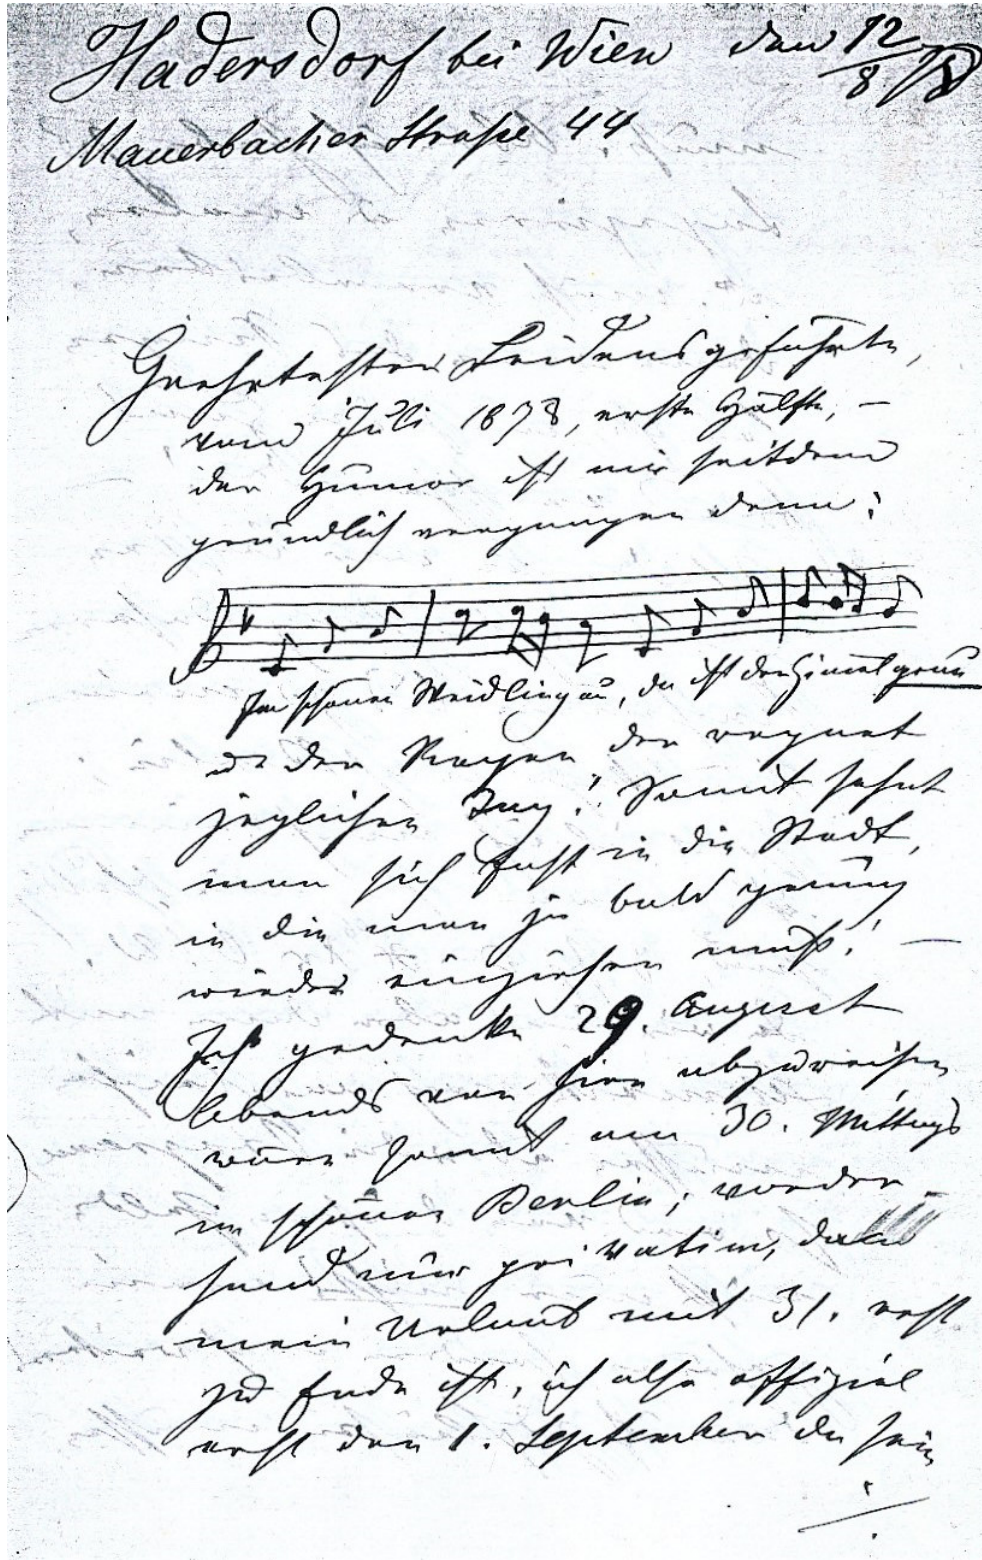 Hadersdorf bei Wien den 12/8 78
Mauerbacher Straße 44
Geehrtester Leidensgefährte,
vom Juli 1878, erste Hälfte, –
der Humor ist mir seitdem
gründlich vergangen denn:
Im schönen Weidlingau, da ist der Himel grau
u der Regen der regnet
jeglichen Tag! Somit sehnt
man sich fast in die Stadt,
in die man ja bald genug
wieder einziehen muß! –
Ich gedenke 29. August
Abends von hier abzureisen
wäre somit am 30. Mittags
im schönen Berlin; vorder-
hand nur privatim, da
mein Urlaub mit 31. erst
zu Ende ist, ich also offiziel
erst den 1. September da sein
./.